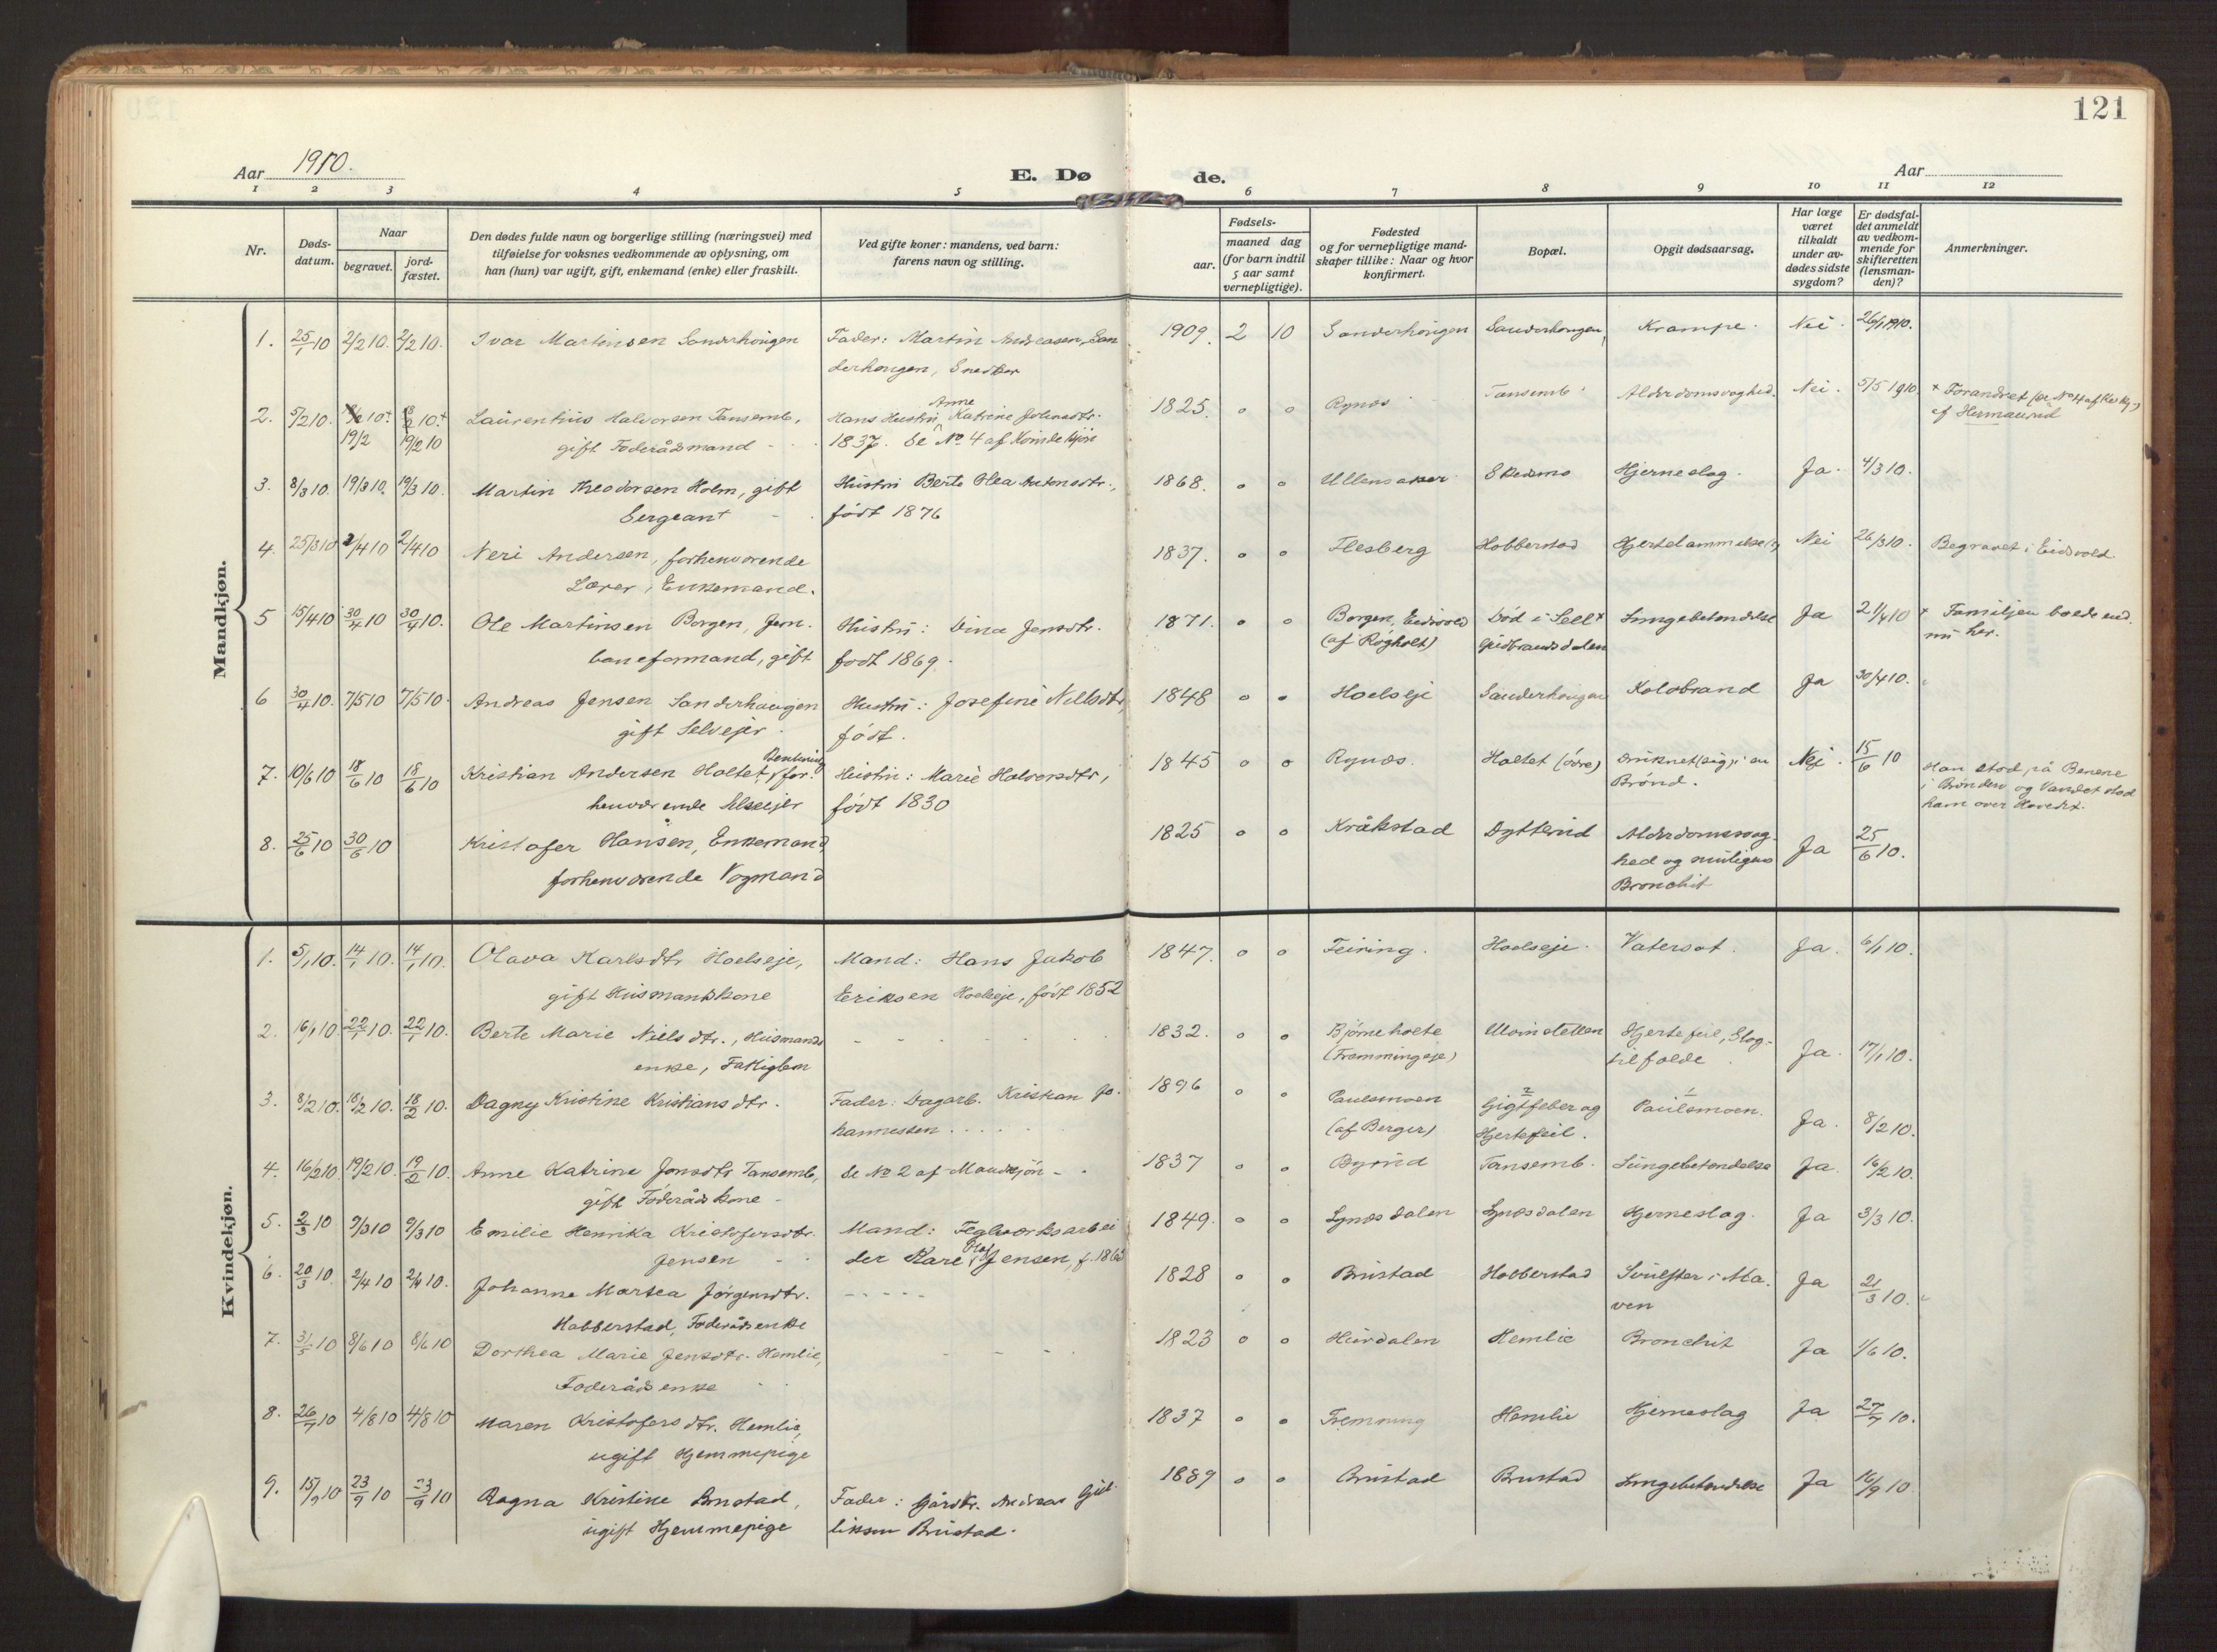 121
Aar 1910.
E. Dø
de.
Aar
1 2 3 4 5 6 7 8 9 10 11 12
Nr.
Døds-
datum.
Naar
begravet.
jord-
fæstet.
Den dødes fulde navn og borgerlige stilling (næringsvei) med
tilføielse for voksnes vedkommende av oplysning, om
han (hun) var ugift, gift, enkemand (enke) eller fraskilt.
Ved gifte koner: mandens, ved barn:
farens navn og stilling.
Fødsels-
aar.
maaned dag
(for barn indtil
5 aar samt
vernepligtige).
Fødested
og for vernepligtige mand-
skaper tillike: Naar og hvor
konfirmert.
Bopæl.
Opgit dødsaarsag.
Har læge
været
tilkaldt
under av-
dødes sidste
sygdom?
Er dødsfal-
det anmeldt
av vedkom-
mende for
skifteretten
(lensman-
den)?
Anmerkninger.
Mandkjøn.
1. 25/1 10 2/2 10. 2/2 10. Ivar Martinsen Sanderhöugen Fader: Martin Andreasen, San 1909. 2 10 Sanderhöugen Sanderhougen, Krampe. Nei. 26/1 1910.
derhougen, Snedker
2. 5/2 10. 10+ 10+ Laurentius Halvorsen Tansemb, Hans Hustru Anne Katrine Johnsdtr. 1825. o o Rynæs Tansemb. Alderdomssvaghed. Nei. 5/5 1910. + Forandret (se No 4 af Kv kj.)
19/2 19/2 10 gift Foderådsmand 1837. Se No. 4 af Kvindekjön
3. 8/3 10. 19/3 10. 19/3 10. Martin Theodorsen Holm, gift Hustru Berte Olea Antonsdtr., 1868. o o Ullensaker Skedsmo Hjerneslag. Ja. 4/3 10.
Sergeant født 1876
4. 25/3 10 2/4 10 2/4 10 Neri Andersen, forhenværende 1837. o o Flesberg Hobberstad Hjertelammelse Nei 26/3 10. Begravet i Eidsvold.
Lærer, Enkemand.
5 15/4 10 30/4 10 30/4 10. Ole Martinsen Borgen, Jern. Hustru: Dina Jensdtr. 1871. o o Borgen, Eidsvold Död i Sell + Lungebetændelse Ja 21/4 10 + Familjen boede end.
baneformand, gift født 1869. (af Røgholt) Gudbrandsdalen nu her.
6 30/4 10. 7/5 10 7/5 10. Andreas Jensen Sanderhaugen Hustru: Josefine Nilsdtr, 1848 o o Hoelseje Sanderhougen Koldbrand Ja 30/4 10.
gift Selvejer. født.
7. 10/6 10 18/6 10 18/6 10 Kristian Andersen Holtet, for. Hustru: Marie Halvorsdtr, 1845 o o Rynæs. Holtet (övre) Druknet (sig) i en Nej. 15/6 10 Han stod på Benene
henværende Selvejer født 1830 Brønd. i Brönden og Vandet stod
ham over Hovedet.
8. 25/6 10 30/6 10 Kristofer Hansen, Enkemand, 1825 o o Kråkstad Dytterud Alderdomssvag- Ja 25/6 10.
forhenværende Vogmand hed og muligens
Bronchit
Kvindekjøn.
1. 5/1 10. 14/1 10. 14/1 10. Olava Karlsdtr Hoelseje, Mand: Hans Jakob 1847. o o Feiring. Hoelseje. Vatersot. Ja. 6/1 10.
gift Husmandskone Eriksen Hoelseje, født 1852
2. 16/1 10. 22/1 10. 22/1 10. Berte Marie Nielsdtr., Husmands 1832. o o Bjørneholte Hjertefeil, Slag- Ja. 17/1 10.
enke, Fattiglem (Fremmingeje) tilfælde.
3. 8/2 10. 18/2 10. 18/2 10. Dagny Kristine Kristiansdtr. Fader: Dagarb. Kristian Jo. 1896 o o Paulsmoen 2 Gigtfeber og 1 Paulsmoen. Ja. 8/2 10.
hannessen. (af Berger) Hjertefeil.
4. 16/2 10. 19/2 10. 19/2 10. Anne Katrine Jonsdtr Tansemb, Se No 2 af Mandkjön 1837 o o Byrud Tansemb. Lungebetændelse Ja. 16/2 10.
gift Föderådskone
5. 2/3 10 9/3 10 9/3 10 Emilie Henrika Kristofersdtr. Mand: Teglverksarbei 1849. o o Lynæsdalen Lynæsdalen Hjerneslag. Ja 3/3 10.
Jensen der Kare Olaf Jensen, f. 1863
6. 20/3 10. 2/4 10 2/4 10. Johanne Martea Jörgensdtr. 1828 o o Brustad Hobberstad Svulster i Ma. Ja 21/3 10.
Hobberstad, Foderådsenke ven
7. 31/5 10 8/6 10 8/6 10 Dorthea Marie Jensdtr. Hemlie, 1823 o o Hurdalen Hemlie Bronchit Ja 1/6 10.
Foderådsenke
8. 26/7 10 4/8 10 4/8 10 Maren Kristofersdtr. Hemlie, 1837 o o Fremming Hemlie Hjerneslag Ja 27/7 10.
ugift Hjemmepige
9. 15/9 10 23/9 10 23/9 10 Ragna Kristine Brustad, Fader: Gårdbr. Andreas Gul 1889 o o Brustad Brustad Lungebetændelse Ja 16/9 10
ugift Hjemmepige liksen Brustad.